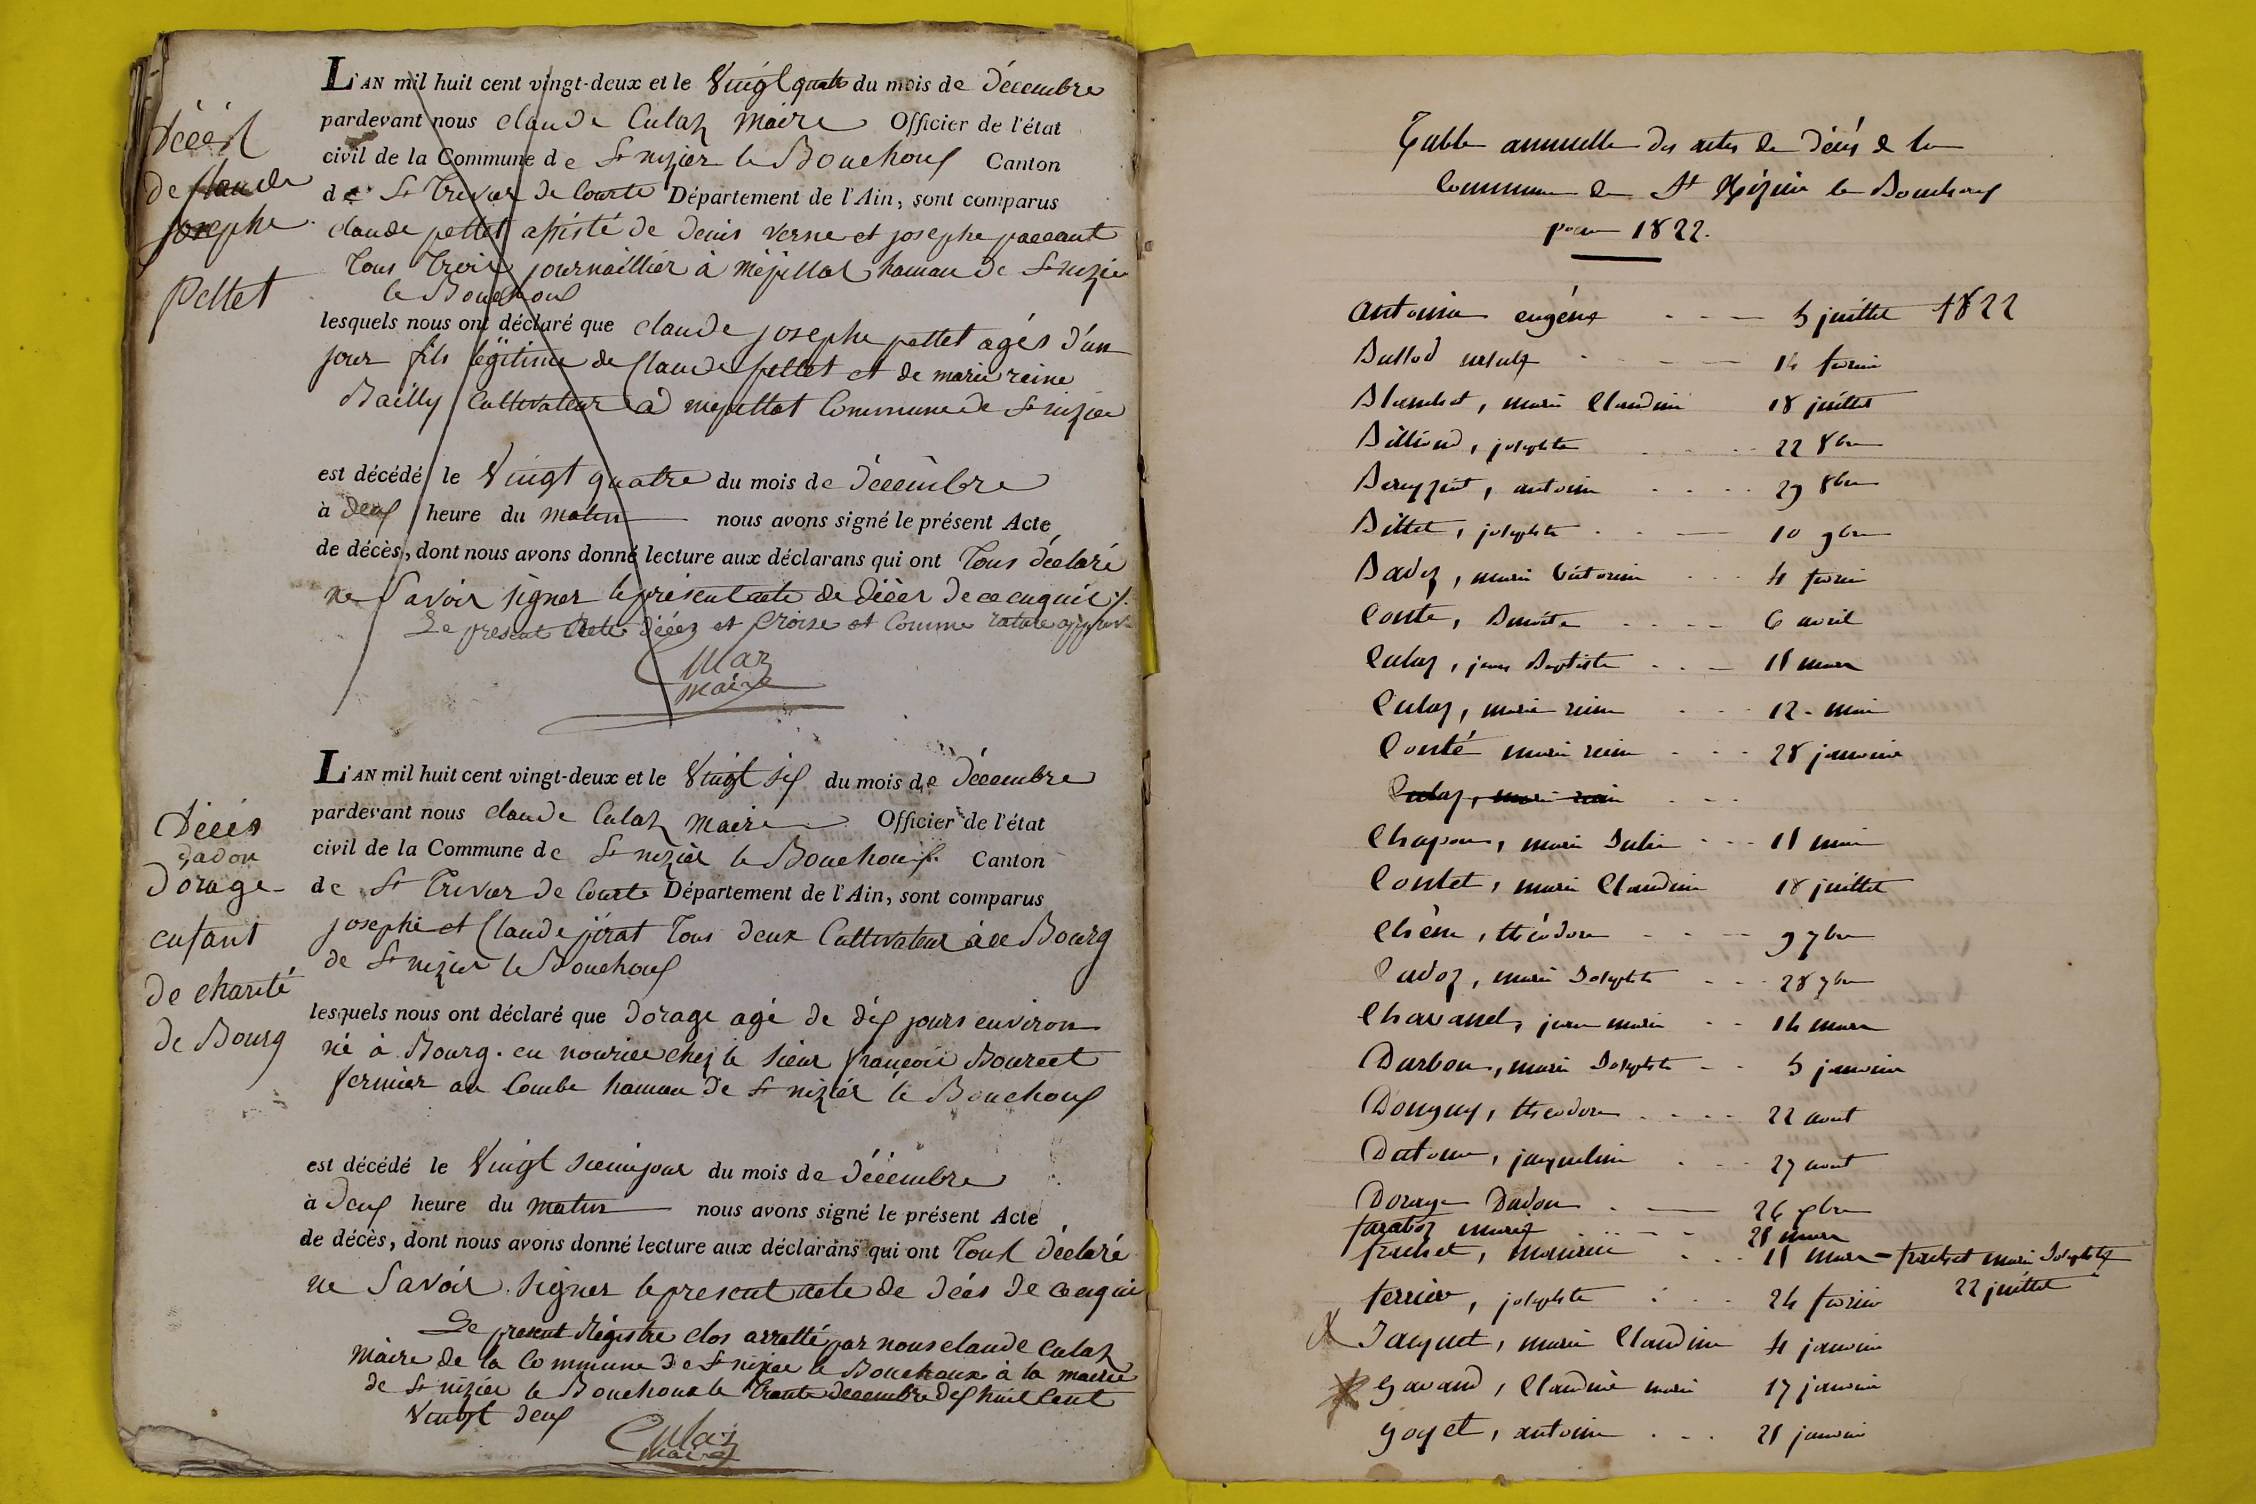 Décès
de Claude
Josephe
Pettet
L'AN mil huit cent vingt-deux et le Vingt quatre du mois de Décembre
pardevant nous Claude Culaz Maire Officier de l'état
civil de la Commune de St nizier le Bouchoux Canton
de St Trivier de Courte Département de l'Ain, sont comparus
Claude pettet assisté de Denis Verne et josephe paccaut
Tous Trois journaillier à Mépillat hamau de St nizier
le Bouchoux
lesquels nous ont déclaré que Claude josephe pettet agés d'un
jour fils légitime de Claude pettet et de marie reine
Bailly Cultivateur à mépillat Commune de St nizier
est décédé le Vingt quatre du mois de Décembre
à Deux heure du matin nous avons signé le présent Acte
de décès, dont nous avons donné lecture aux déclarans qui ont Tous déclaré
ne Savoir signer le présent acte de décès de ce enquis
Le présent Acte décés et Croise et Comme rature approuvé
Culaz
maire
Décés
Dadon
Dorage
enfant
de charité
de Bourg
L'AN mil huit cent vingt-deux et le Vingt six du mois de Décembre
pardevant nous Claude Culaz Maire Officier de l'état
civil de la Commune de St nizier le Bouchoux Canton
de St Trivier de Courte Département de l'Ain, sont comparus
josephe et Claude jirat Tous deux Cultivateur à ce Bourg
de St nizier le Bouchoux
lesquels nous ont déclaré que Dorage agé de dix jours environ
né à Bourg en nourice chez le Sieur françois Bourcet
fermier au Combe hamau de St nizier le Bouchoux
est décédé le Vingt du mois de Décembre
à Deux heure du matin nous avons signé le présent Acte
de décès, dont nous avons donné lecture aux déclarans qui ont Tous déclaré
ne Savoir signer le présent acte de décés de ce enquis
Le présent Régistre clos arretté par nous Claude Culaz
Maire de la Commune de St nizier le Bouchoux à la mairie
de St nizier le Bouchoux le Trante decembre dix huit Cent
Vingt deux
Culaz
Maire
Table annuelle des actes de Décès de la
Commune de St Nizier le Bouchoux
pour 1822.
Antoine eugéne 5 juillet 1822
Bullod 14 fevrier
marie Claudine 18 juillet
Billioud, josephte 22 8bre
antoine 29 8bre
Billet, josephte 10 9bre
Badoz, marie Victorine 4 fevrier
Conte, Benoîte 6 avril
Culaz, jean Baptiste 11 mars
Culaz, marie reine 12 mai
Conté marie reine 28 janvier
Culaz, marie reine
Chapon, marie Julie 11 mai
Contet, marie Claudine 18 juillet
Chêne, théodore 9 7bre
Cadoz, marie Josephte 28 7bre
Chavanel, jean marie 14 mars
Durbon, marie Josephte 5 janvier
Donguy, théodore 22 aout
jacqueline 27 aout
Dorage Dadon 26 xbre
marie 21 mars
11 mars marie Josephte
22 juillet
ferrier, josephte 24 fevrier
Jacquet, marie Claudine 4 janvier
Gavand, Claudine marie 17 janvier
Goyet, antoine 21 janvier